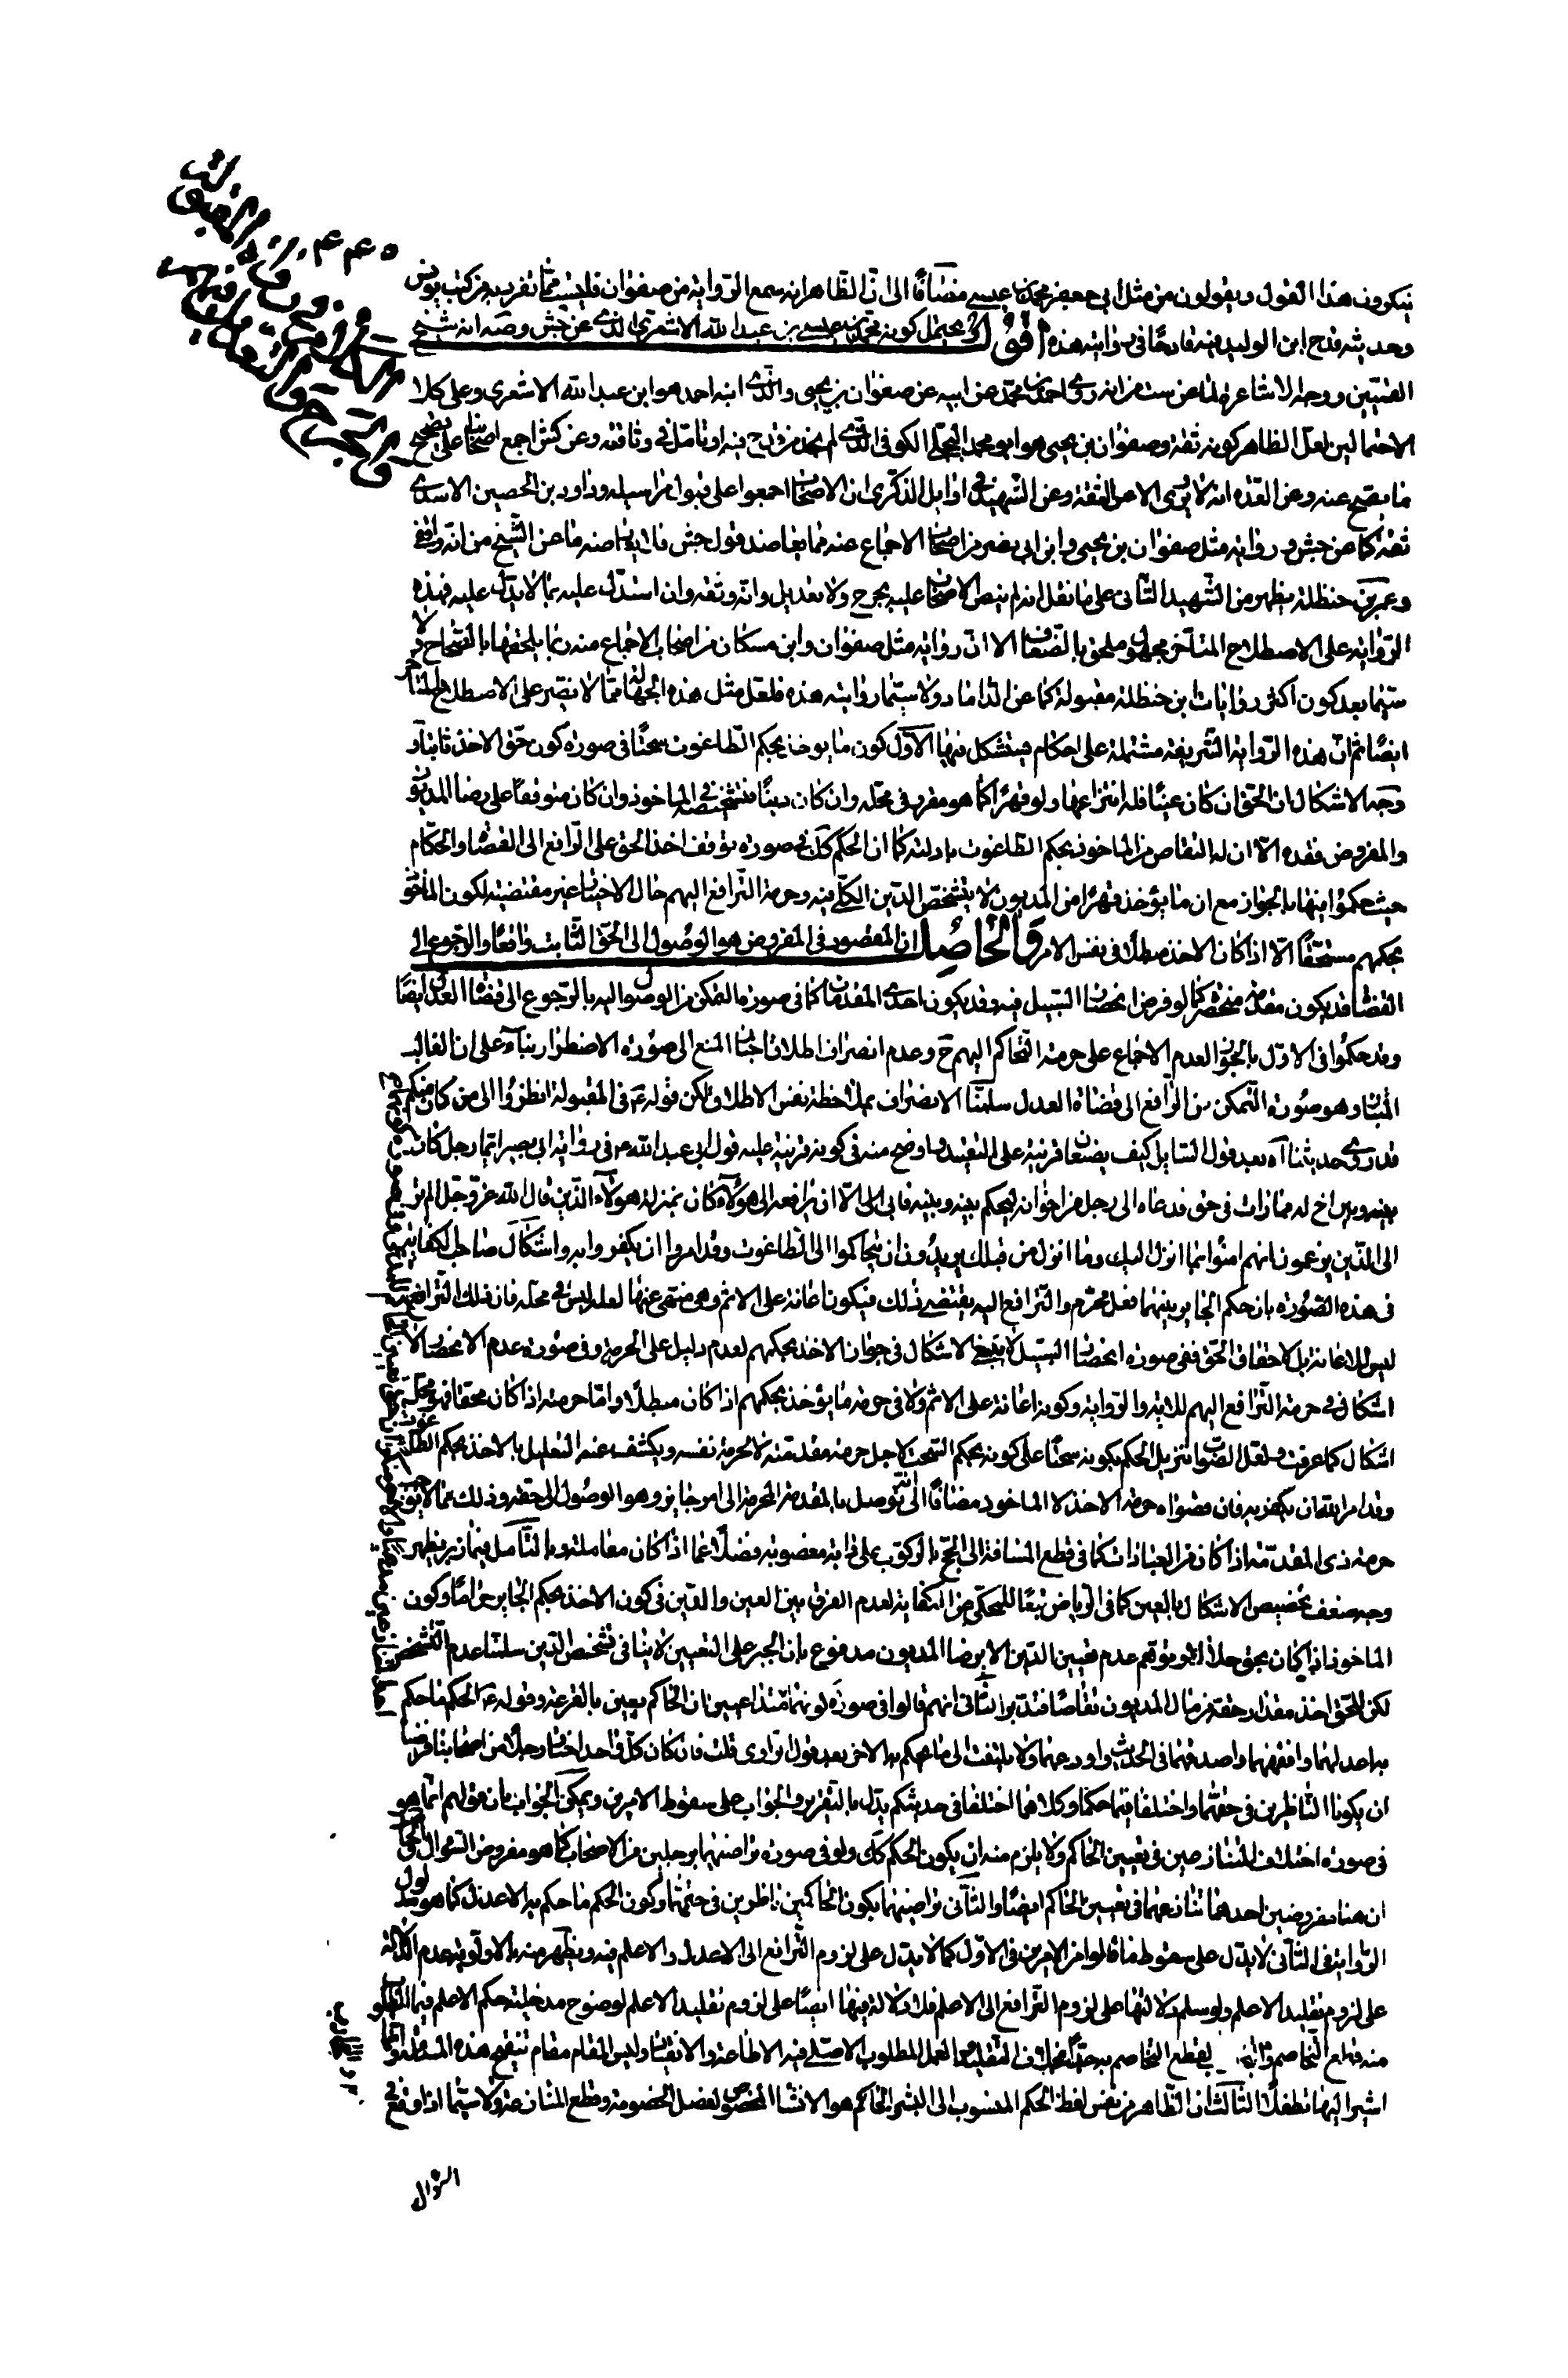 ينكرون هذا القول ويقولون من مثل ابي جعفر محمد بن عيسى مضافا الى ان الظاهر انه سمع الرواية من صفوان فليست مما تفرد به من كتب يونس
وحديثه قدح ابن الوليد فيه قادحا في روايته هذه اقول او يحتمل كونه محمد بن عيسى بن عبد الله الاشعري الذي عن جش وصه انه شيخ
القميين ووجه الاشاعرة لما عن ست من انه روى احمد بن محمد عن ابيه عن صفوان بن يحيى والذي ابنه احمد هو ابن عبد الله الاشعري وعلى كلا
الاحتمالين لعل الظاهر كونه ثقة وصفوان بن يحيى هو ابو محمد البجلي الكوفي الذي لم نجد من قدح فيه او تامل في وثاقته وعن كش اجمع اصحابنا على تصحيح
ما يصح عنه وعن العدة انه لا يروى الا عن الثقة وعن الشهيد في اوايل الذكرى ان الاصحاب اجمعوا على قبول مراسيله وداود بن الحصين الاسدي
ثقة كما عن جش و رواية مثل صفوان بن يحيى وابن ابي نصر من اصحاب الاجماع عنه مما يعاضد قول جش فلا يعارضه ما عن الشيخ من انه واقفي
وعمر بن حنظلة يظهر من الشهيد الثاني على ما نقل انه لم ينص الاصحاب عليه بجرح ولا تعديل وانه وثقه وان استدل عليه بما لا يدل عليه فهذه
الرواية على الاصطلاح المتاخر مجهول ملحق بالضعاف الا ان رواية مثل صفوان وابن مسكان من اصحاب الاجماع منه ربما يلحقها بالصحاح ولا
سيما بعد كون اكثر روايات ابن حنظلة مقبولة كما عن الداماد ولا سيما روايته هذه فلعل مثل هذه الجهالة مما لا تضر على الاصطلاح المتاخر
ايضا ثم ان هذه الرواية الشريفة مشتملة على احكام يستشكل فيها الاول كون ما يوخذ بحكم الطاغوت سحتا في صورة كون حق الاخذ ثابتا و
وجه الاشكال ان الحق ان كان عينا فله انتزاعها ولو قهرا كما هو مقرر في محله وان كان دينا فتشخصه في الماخوذ وان كان متوقفا على رضا المديون
والمفروض فقده الا ان له التقاص من الماخوذ بحكم الطاغوت بادلته كما ان الحكم كك في صورة توقف اخذ الحق على الترافع الى القضاة والحكام
حيث حكموا فيها بالجواز مع ان ما يؤخذ قهرا من المديون لا يتشخص الدين الكلي فيه وحرمة الترافع اليهم حال الاختيار غير مقتضية لكون الماخوذ
بحكمهم مستحقا الا اذا كان الاخذ مبطلا في نفس الامر والحاصل ان المقصود في المفروض هو الوصول الى الحق الثابت واقعا والرجوع الى
القضاة قد يكون مقدمة منحصرة كما لو فرض انحصار السبيل فيه وقد يكون احدى المقدمات كما في صورة ما لو تمكن من الوصول اليه بالرجوع الى قضاة العدل ايضا
وقد حكموا في الاول بالجواز لعدم الاجماع على حرمة التحاكم اليهم ح وعدم انصراف اطلاقات اخبار المنع الى صورة الاضطرار بناء على ان الغالب
المتبادر هو صورة التمكن من الترافع الى قضاة العدل سلمنا الانصراف بملاحظة نفس الاطلاق ولكن قوله ع في المقبولة انظروا الى من كان منكم
قد روى حديثنا اه بعد قول السايل كيف يصنعان قرينة على التقييد واوضح منه في كونه قرينة عليه قول ابي عبد الله ع في رواية ابي بصير ايما رجل كان
بينه وبين اخ له مماراة في حق فدعاه الى رجل من اخوانه ليحكم بينه وبينه فابى الا ان يرافعه الى هؤلاء كان بمنزلة هؤلاء الذين قال الله عز وجل الم تر
الى الذين يزعمون انهم امنوا بما انزل اليك وما انزل من قبلك يريدون ان يتحاكموا الى الطاغوت وقد امروا ان يكفروا به واشكال صاحب الكفاية
في هذه الصورة بان حكم الجاير بينهما فعل محرم والترافع اليه يقتضي ذلك فيكون اعانة على الاثم وهي منهي عنها لعله ليس في محله فان ذلك الترافع
ليس للاعانة بل لاحقاق الحق ففي صورة انحصار السبيل لا ينبغي الاشكال في جواز الاخذ بحكمهم لعدم دليل على الحرمة وفي صورة عدم الانحصار لا
اشكال في حرمة الترافع اليهم للاية والرواية وكونه اعانة على الاثم ولا في حرمة ما يؤخذ بحكمهم اذا كان مبطلا واما حرمته اذا كان محقا فهو محل
اشكال كما عرفت ولعل الصواب تنزيل الحكم بكونه سحتا على كونه بحكم السحت لاجل حرمة مقدمته لا لحرمة نفسه ويكشف عنه التعليل بالاخذ بحكم الطاغوت
وقد امر الله ان يكفر به فان فحواه حرمة الاخذ لا الماخوذ مضافا الى انه توصل بالمقدمة المحرمة الى امر جايز وهو الوصول الى حقه وذلك مما لا يوجب
حرمة ذي المقدمة اذا كان من العبادات كما في قطع المسافة الى الحج بالركوب على دابة مغصوبة فضلا عما اذا كان معاملة وبالتامل فيما ذكر يظهر
وجه ضعف تخصيص الاشكال بالعين كما في الرياض تبعا للمحكي من الكفاية لعدم الفرق بين العين والدين في كون الاخذ بحكم الجاير حراما وكون
الماخوذ اذا كان بحق حلالا وتوهم عدم تعيين الدين الا برضا المديون مدفوع بان الجبر على التعيين لا ينافي تشخص الدين سلمنا عدم التشخص
لكن للمحق اخذ مقدار حقه من مال المديون تقاصا فتدبر الثاني انهم قالوا في صورة لو تداعيين ان الحاكم يعين بالقرعة وقوله ع الحكم ما حكم
به اعدلهما وافقههما واصدقهما في الحديث واورعهما ولا يلتفت الى ما حكم به الاخر بعد قول الراوي قلت فان كان كل واحد اختار رجلا من اصحابنا فرضيا
ان يكونا الناظرين في حقهما واختلفا فيما حكما وكلاهما اختلفا في حديثكم يدل بالتقرير والجواب على سقوط الامرين ويمكن الجواب بان قولهم انما هو
في صورة اختلاف المتنازعين في تعيين الحاكم ولا يلزم منه ان يكون الحكم كك ولو في صورة تراضيهما برجلين من الاصحاب كما هو مفروض السؤال
ان هنا مفروضين احدهما تنازعهما في تعيين الحاكم ايضا والثاني تراضيهما بكون الحاكمين ناظرين في حقهما وكون الحكم ما حكم به الاعدل كما هو مدلول
الرواية في الثاني لا يدل على سقوط ما قالوا من الامرين في الاول كما لا يدل على لزوم الترافع الى الاعدل والاعلم فيه ويظهر منه بالاولوية عدم الدلالة
على لزوم تقليد الاعلم ولو سلم دلالتها على لزوم الترافع الى الاعلم فلا دلالة فيها ايضا على لزوم تقليد الاعلم لوضوح مدخلية حكم الاعلم فيما المطلوب
منه رفع التخاصم ليقطع التخاصم به جدا بخلاف التقليد والعمل المطلوب الاصلي فيه الاطاعة والانقياد وليس المقام مقام تنقيح هذه المسئلة وانما
اشير اليها تطفلا الثالث ان الظاهر من نفس لفظ الحكم المنسوب الى البشر الحاكم هو الانشاء المخصوص لفصل الخصومة وقطع المنازعة ولا سيما اذا وقع في
السؤال